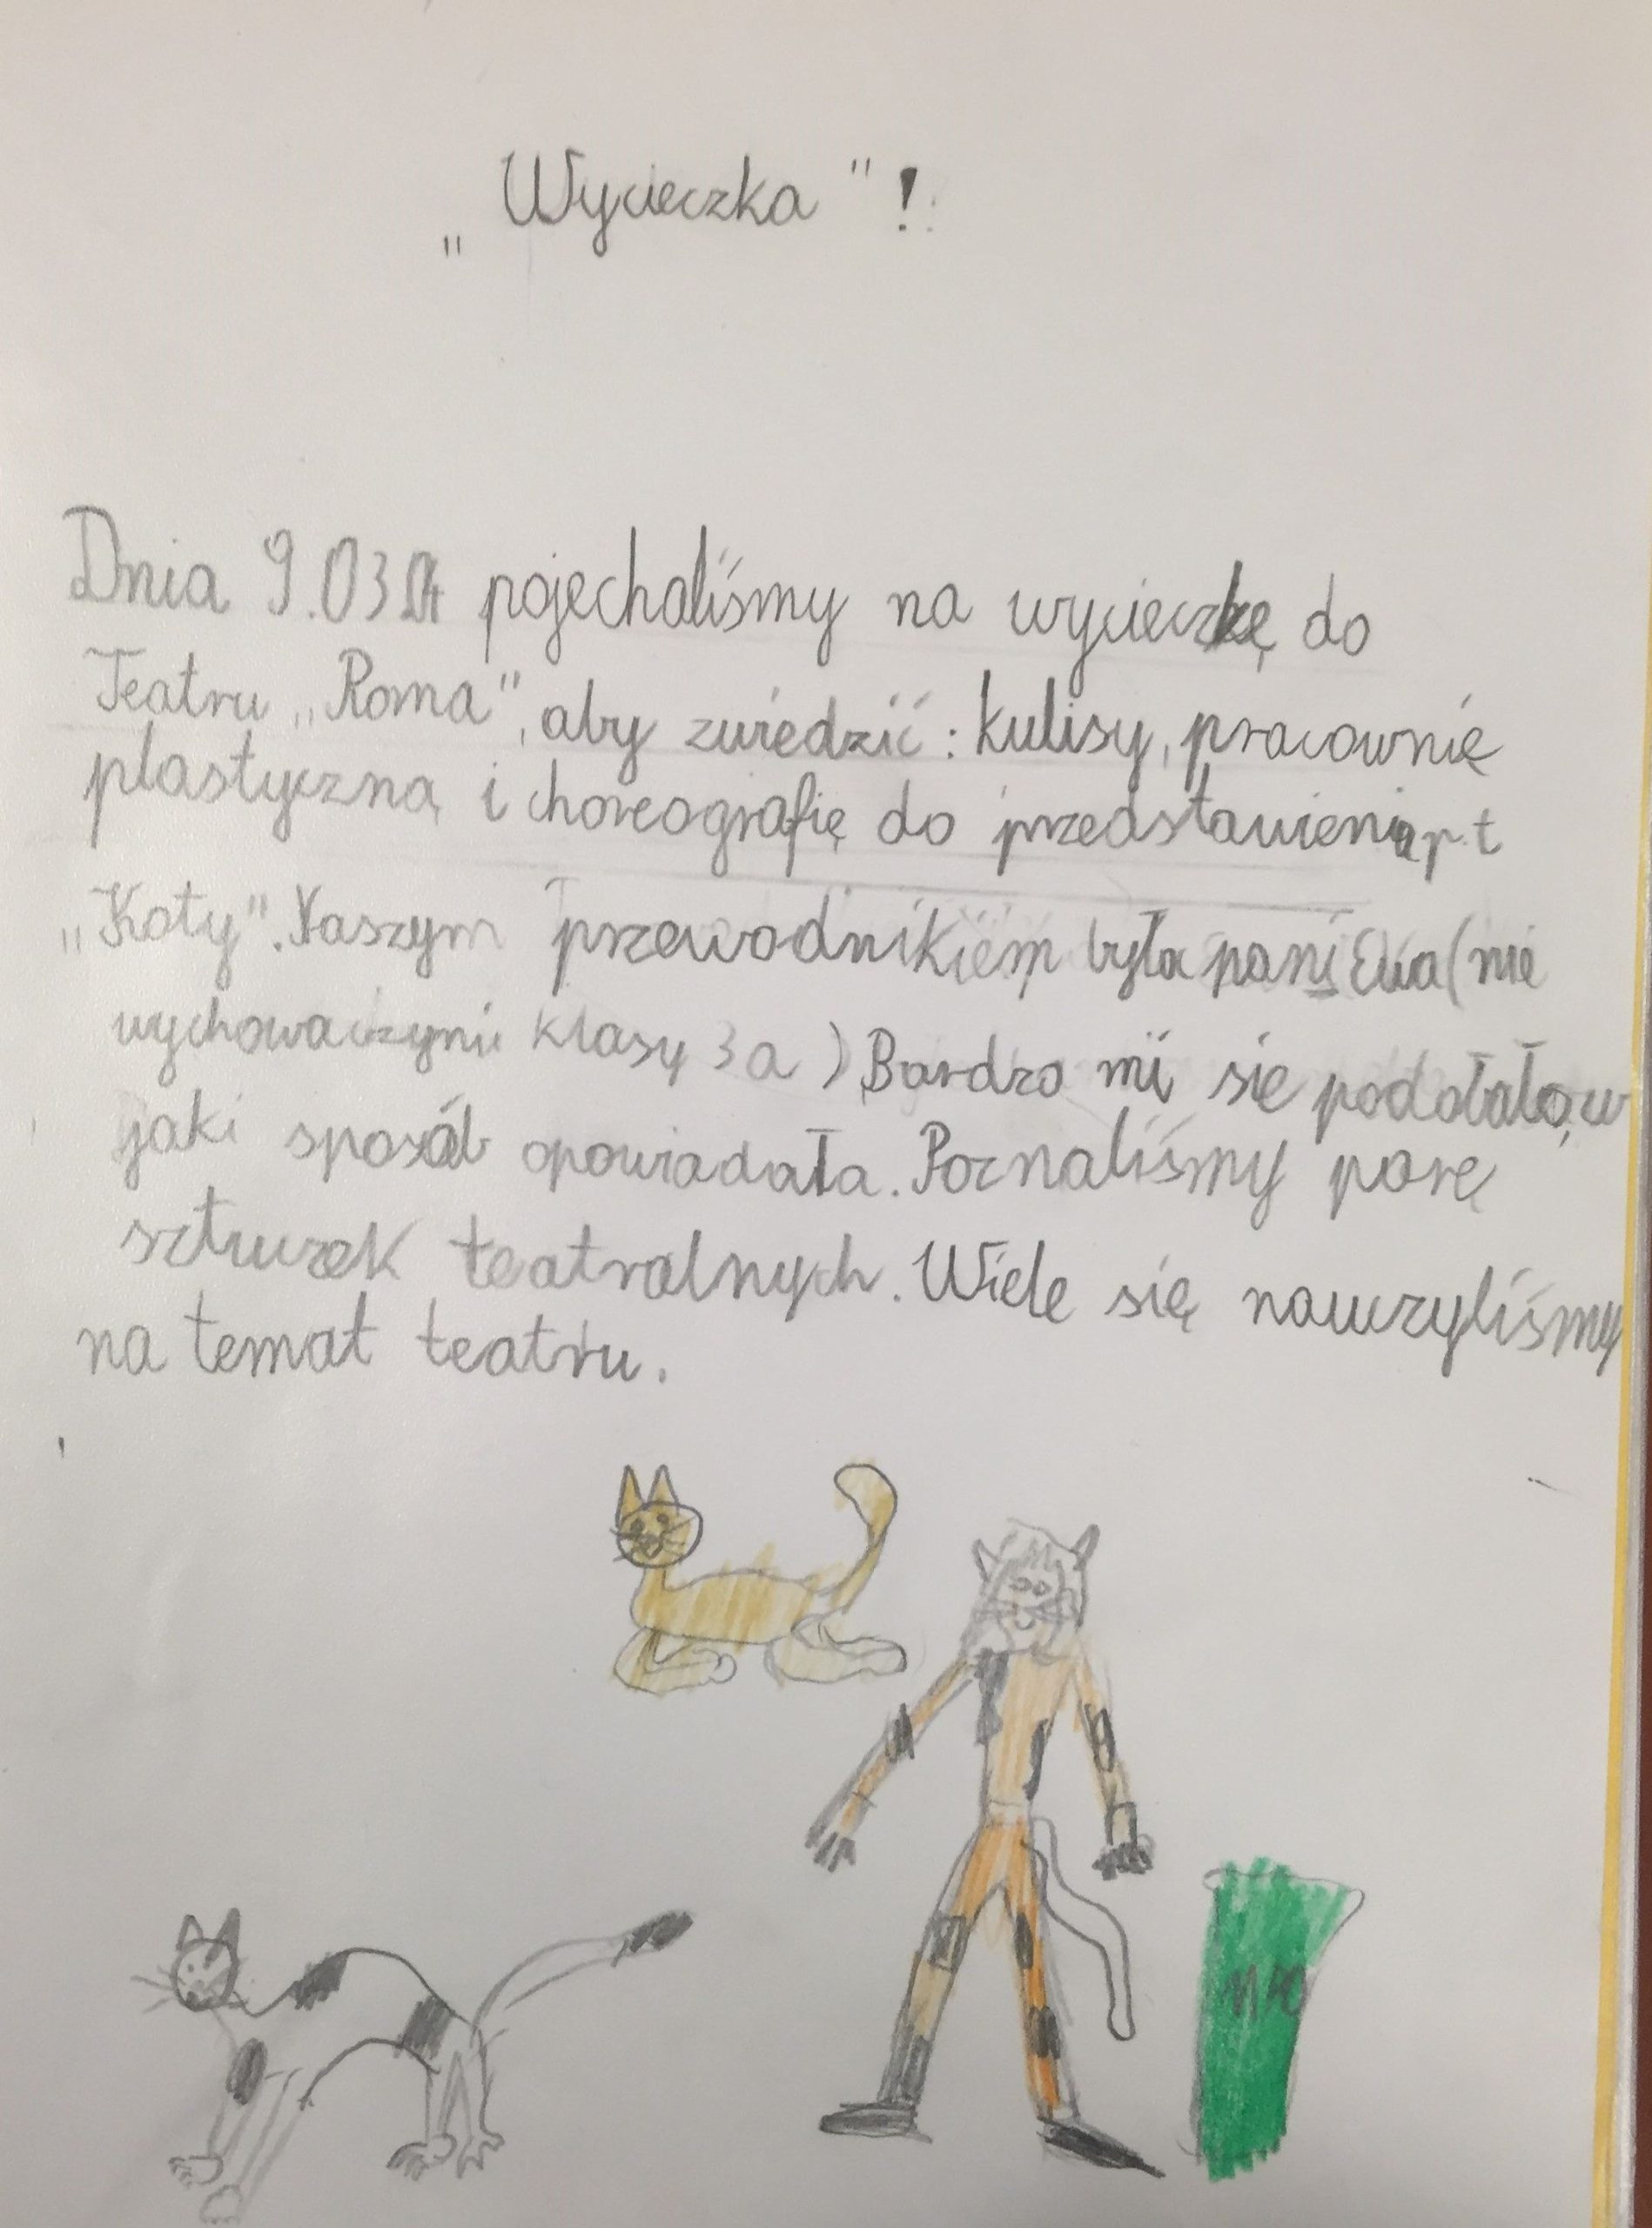 „Wycieczka"!
Dnia 9.03 pojechaliśmy na wycieczkę do
Teatru „Roma", aby zwiedzić: kulisy, pracownię
plastyczną i choreografię do przedstawienia p.t
„Koty". Naszym przewodnikiem była pani Ewa (nie
wychowaczyni klasy 3a) Bardzo mi się podobało, w
jaki sposób opowiadała. Poznaliśmy parę
sztuczek teatralnych. Wiele się nauczyliśmy
na temat teatru.